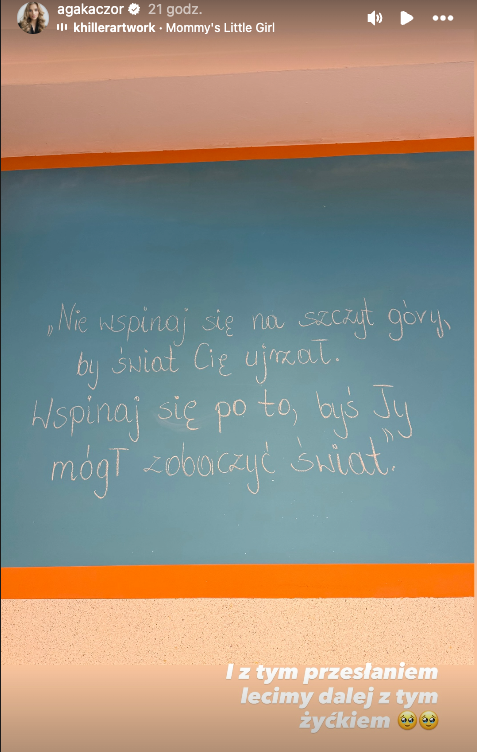 agakaczor 21 godz.
khillerartwork · Mommy's Little Girl
„Nie wspinaj się na szczyt góry,
by świat Cię ujrzał.
Wspinaj się po to, byś Ty
mógł zobaczyć świat".
I z tym przesłaniem
lecimy dalej z tym
żyćkiem 🥹🥹